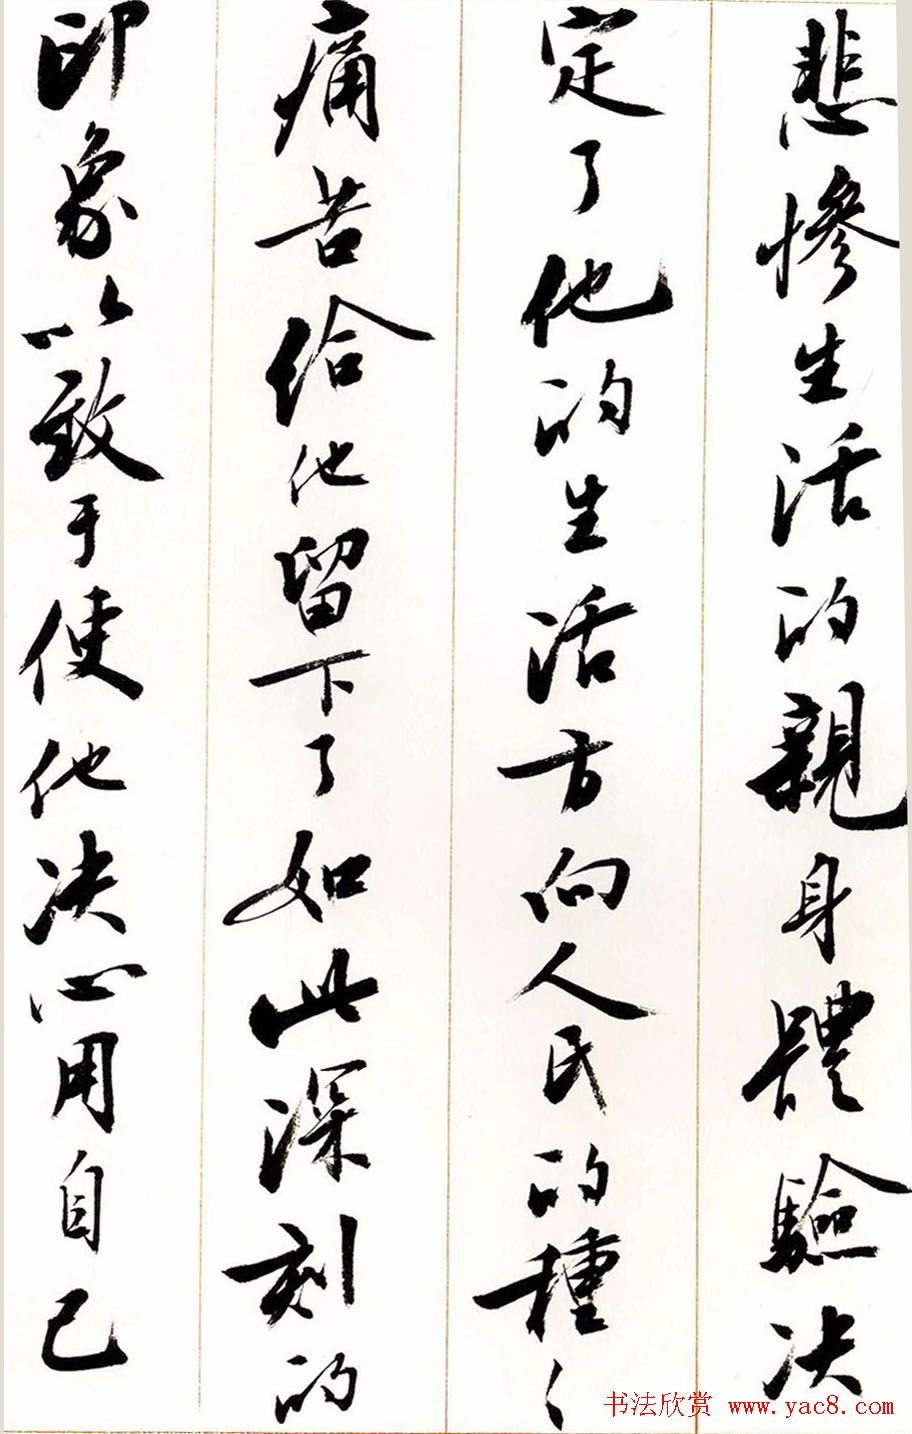 悲慘生活的親身體驗决
定了他的生活方向人民的種々
痛苦给他留下了如此深刻的
印象以致于使他决心用自己
书法欣赏 www.yac8.com